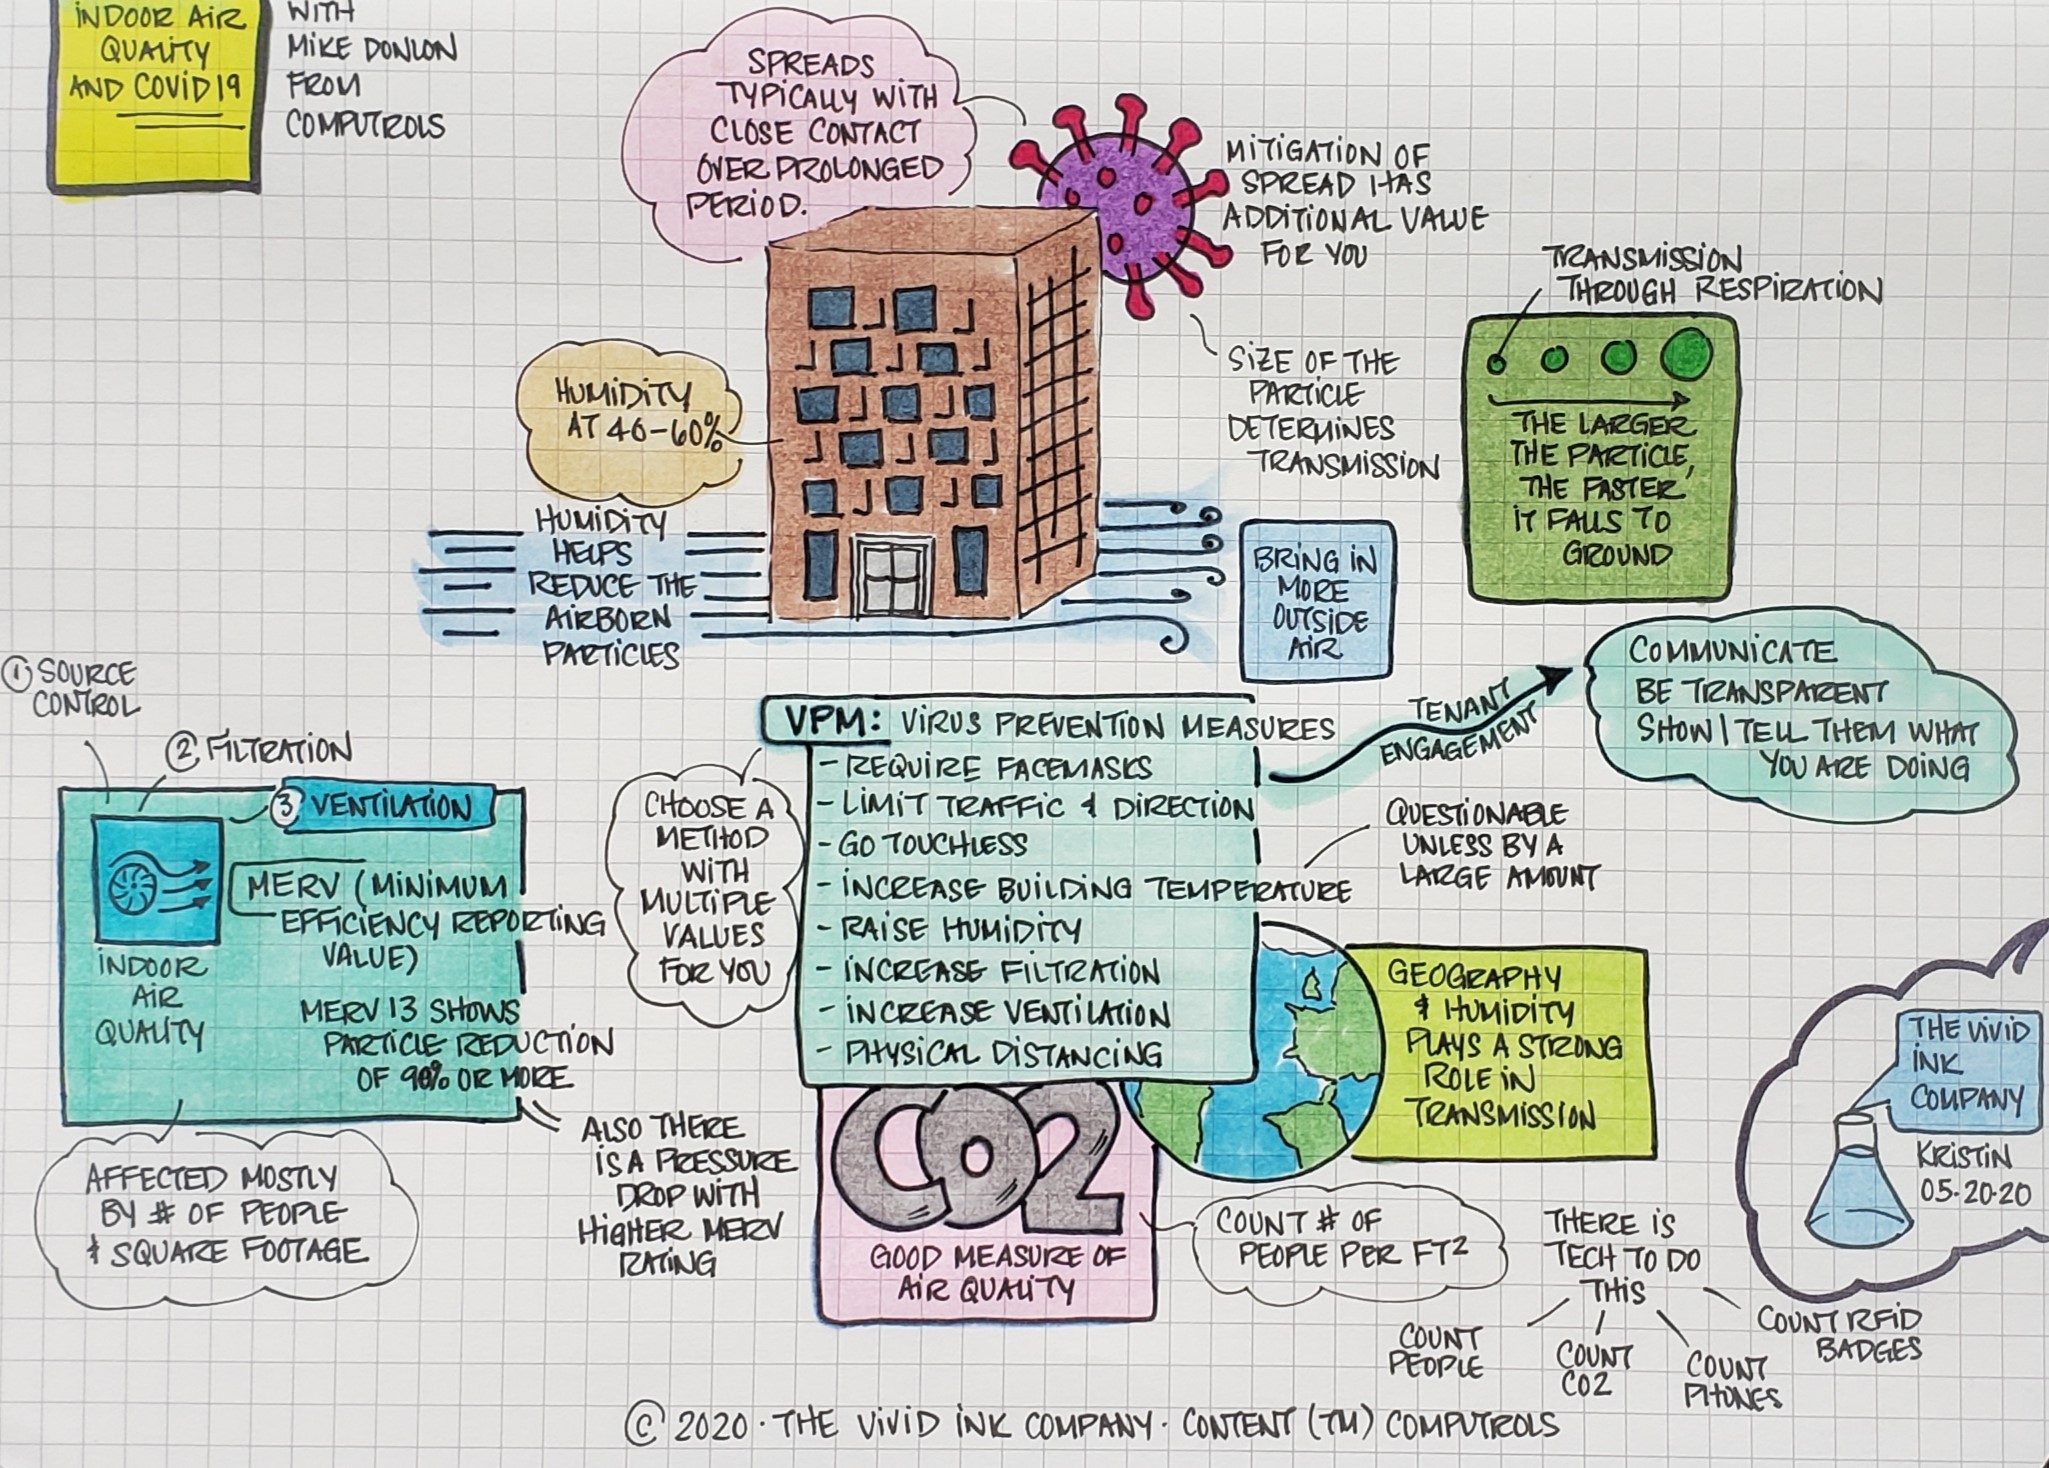 INDOOR AIR
QUALITY
AND COVID19
WITH
MIKE DONLON
FROM
COMPUTROLS
SPREADS
TYPICALLY WITH
CLOSE CONTACT
OVER PROLONGED
PERIOD.
MITIGATION OF
SPREAD HAS
ADDITIONAL VALUE
FOR YOU
TRANSMISSION
THROUGH RESPIRATION
SIZE OF THE
PARTICLE
DETERMINES
TRANSMISSION
THE LARGER
THE PARTICLE,
THE FASTER
IT FALLS TO
GROUND
HUMIDITY
AT 40-60%
HUMIDITY
HELPS
REDUCE THE
AIRBORN
PARTICLES
BRING IN
MORE
OUTSIDE
AIR
1 SOURCE
CONTROL
2 FILTRATION
3 VENTILATION
MERV (MINIMUM
EFFICIENCY REPORTING
VALUE)
INDOOR
AIR
QUALITY
MERV 13 SHOWS
PARTICLE REDUCTION
OF 90% OR MORE
AFFECTED MOSTLY
BY # OF PEOPLE
& SQUARE FOOTAGE
ALSO THERE
IS A PRESSURE
DROP WITH
HIGHER MERV
RATING
CHOOSE A
METHOD
WITH
MULTIPLE
VALUES
FOR YOU
VPM: VIRUS PREVENTION MEASURES
- REQUIRE FACEMASKS
- LIMIT TRAFFIC & DIRECTION
- GO TOUCHLESS
- INCREASE BUILDING TEMPERATURE
- RAISE HUMIDITY
- INCREASE FILTRATION
- INCREASE VENTILATION
- PHYSICAL DISTANCING
TENANT
ENGAGEMENT
COMMUNICATE
BE TRANSPARENT
SHOW / TELL THEM WHAT
YOU ARE DOING
QUESTIONABLE
UNLESS BY A
LARGE AMOUNT
GEOGRAPHY
& HUMIDITY
PLAYS A STRONG
ROLE IN
TRANSMISSION
CO2
GOOD MEASURE OF
AIR QUALITY
COUNT # OF
PEOPLE PER FT2
THERE IS
TECH TO DO
THIS
COUNT
PEOPLE
COUNT
CO2
COUNT
PHONES
COUNT RFID
BADGES
THE VIVID
INK
COMPANY
KRISTIN
05.20.20
© 2020 · THE VIVID INK COMPANY · CONTENT (TM) COMPUTROLS